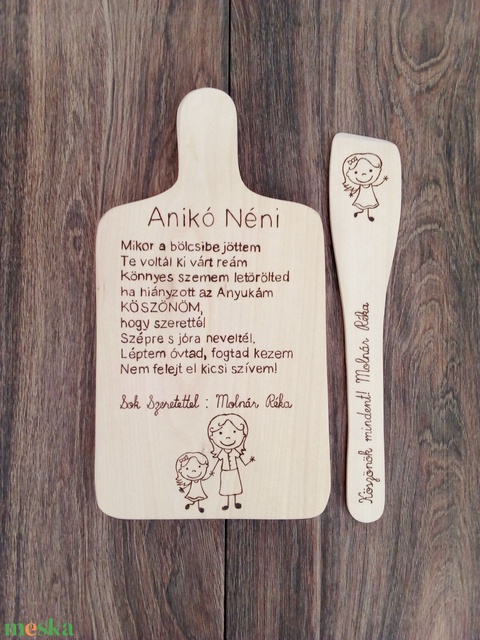 Anikó Néni
Mikor a bölcsibe jöttem
Te voltál ki várt reám
Könnyes szemem letörölted
ha hiányzott az Anyukám
KÖSZÖNÖM,
hogy szerettél
Szépre s jóra neveltél.
Léptem óvtad, fogtad kezem
Nem felejt el kicsi szívem!
Sok Szeretettel : Molnár Réka
Köszönök mindent! Molnár Réka
meska